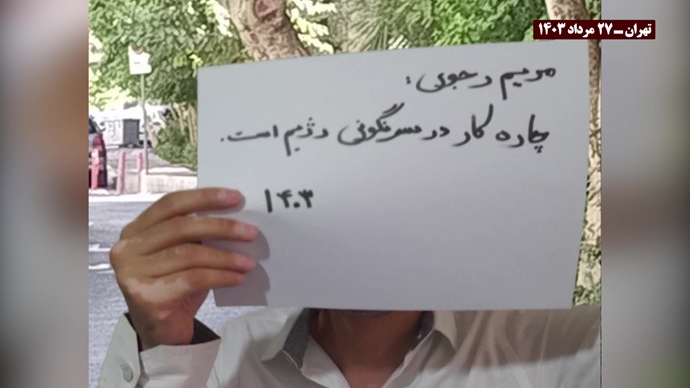 تهران ــ ۲۷ مرداد ۱۴۰۳
مریم رجوی:
چاره کار در سرنگونی رژیم است.
۱۴۰۳